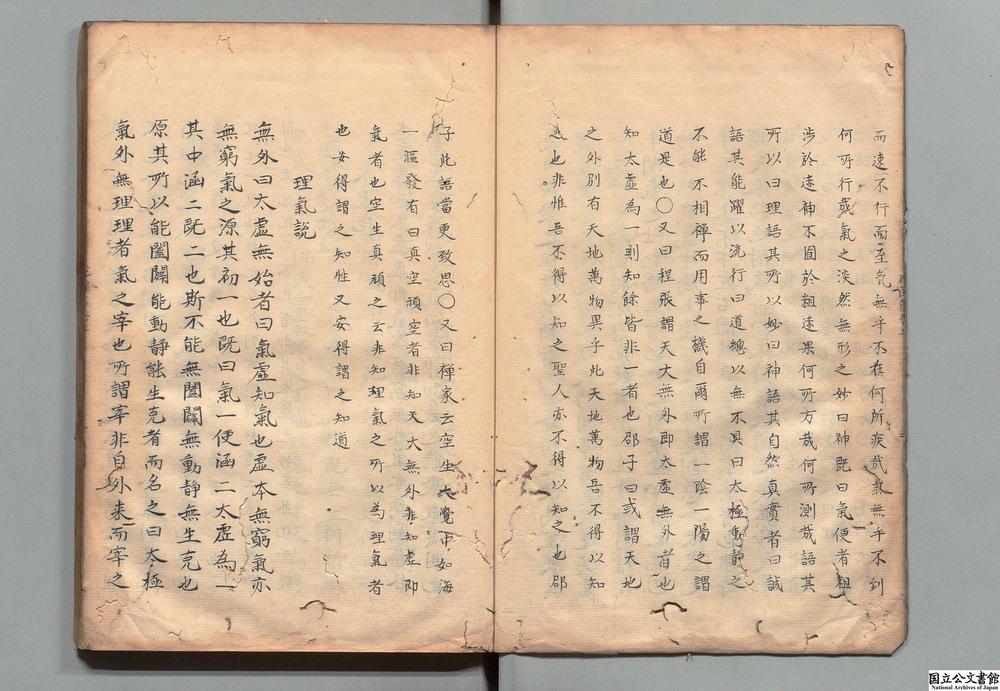 而速不行而至氣無乎不在何所疾哉氣無乎不到
何所行哉氣之淡然無形之妙曰神既曰氣便者粗
涉於迹神不囿於粗迹果何所方哉何所測哉語其
所以曰理語其所以妙曰神語其自然真實者曰誠
語其能躍以流行曰道總以無不具曰太極動靜之
不能不相禪而用事之機自爾所謂一陰一陽之謂
道是也〇又曰程張謂天大無外即太虛無外者也
知太虛為一則知餘皆非一者也邵子曰或謂天地
之外別有天地萬物異乎此天地萬物吾不得以知
之也非惟吾不得以知之聖人亦不得以知之也邵
子此語當更致思〇又曰禪家云空生大覺中如海
一漚發有曰真空頑空者非知天大無外非知虛即
氣者也空生真頑之云非知理氣之所以為理氣者
也安得謂之知性又安得謂之知道
理氣說
無外曰太虛無始者曰氣虛知氣也虛本無窮氣亦
無窮氣之源其初一也既曰氣一便涵二太虛為一
其中涵二既二也斯不能無闔闢無動靜無生克也
原其所以能闔闢能動靜能生克者而名之曰太極
氣外無理理者氣之宰也所謂宰非自外來而宰之
国立公文書館
National Archives of Japan